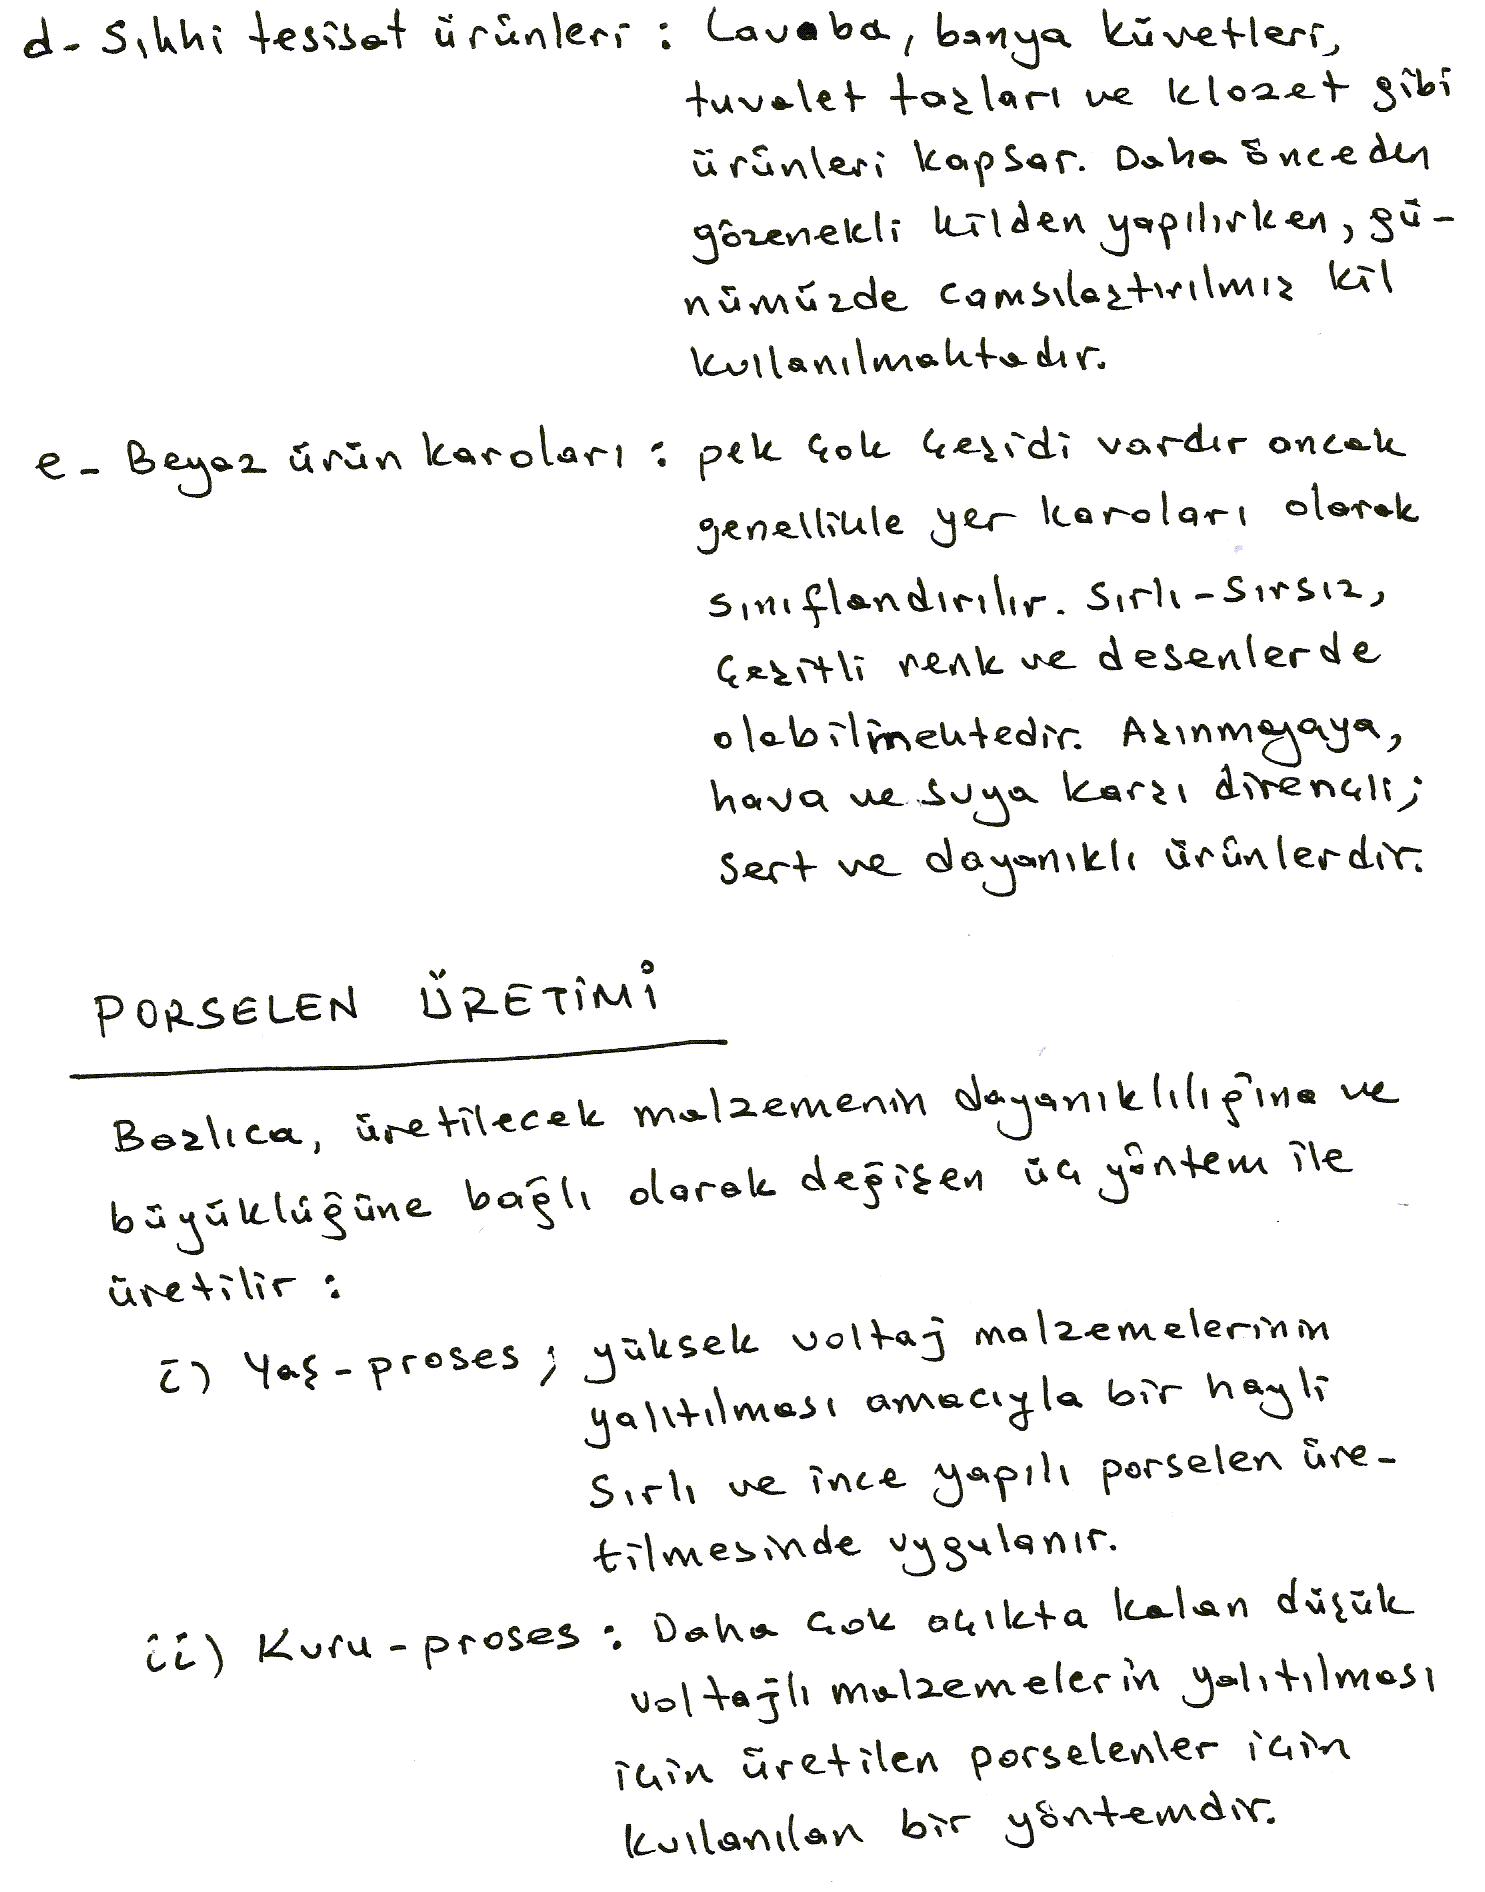 d- Sıhhi tesisat ürünleri : Lavaba, banya küvetleri,
tuvalet taşları ve klozet gibi
ürünleri kapsar. Daha önceden
gözenekli kilden yapılırken, gü-
nümüzde camsılaştırılmış kil
kullanılmaktadır.
e- Beyaz ürün karoları : pek çok çeşidi vardır ancak
genellikle yer karoları olarak
sınıflandırılır. Sırlı-sırsız,
çeşitli renk ve desenlerde
olabilmektedir. Aşınmaya,
hava ve suya karşı dirençli;
sert ve dayanıklı ürünlerdir.
PORSELEN ÜRETİMİ
Başlıca, üretilecek malzemenin dayanıklılığına ve
büyüklüğüne bağlı olarak değişen üç yöntem ile
üretilir :
i) Yaş-proses ; yüksek voltaj malzemelerinin
yalıtılması amacıyla bir hayli
sırlı ve ince yapılı porselen üre-
tilmesinde uygulanır.
ii) Kuru-proses : Daha çok açıkta kalan düşük
voltajlı malzemelerin yalıtılması
için üretilen porselenler için
kullanılan bir yöntemdir.